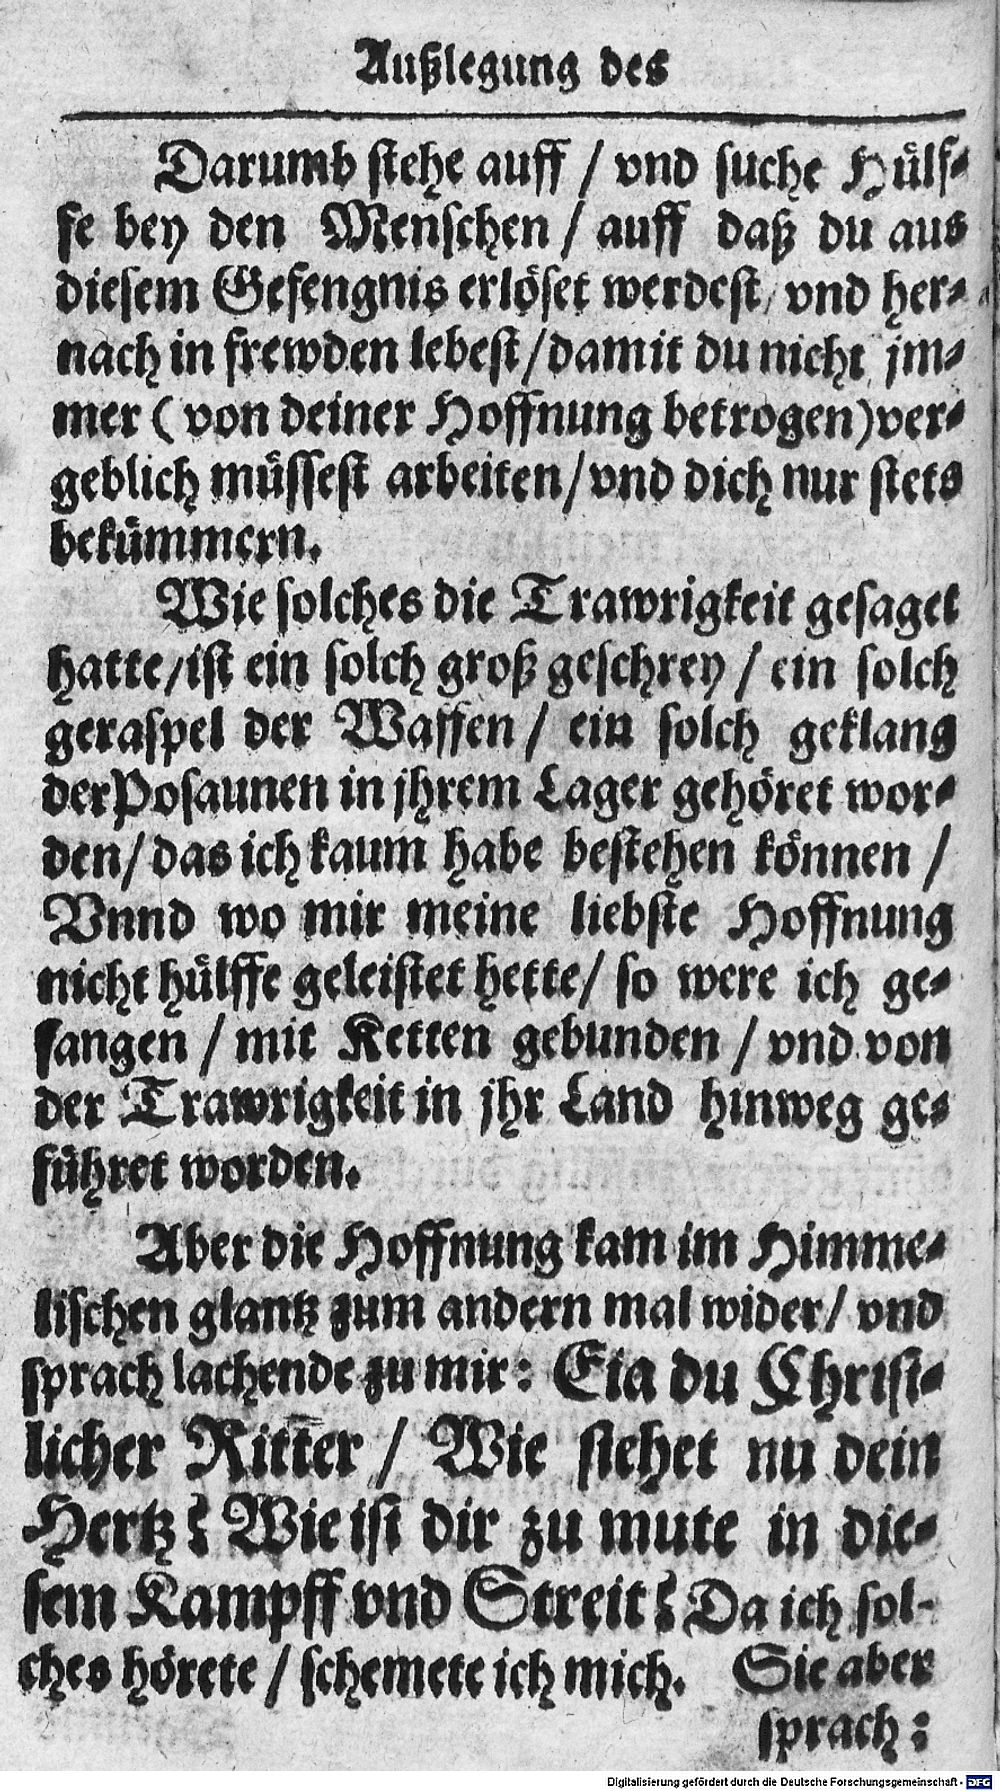 Außlegung des
Darumb stehe auff / vnd suche Hülf-
fe bey den Menschen / auff daß du aus
diesem Gefengnis erlöset werdest / vnd her-
nach in frewden lebest / damit du nicht jm-
mer ( von deiner Hoffnung betrogen ) ver-
geblich müssest arbeiten / vnd dich nur stets
bekümmern.
Wie solches die Trawrigkeit gesaget
hatte / ist ein solch groß geschrey / ein solch
geraspel der Waffen / ein solch geklang
der Posaunen in jhrem Lager gehöret wor-
den / das ich kaum habe bestehen können /
Vnnd wo mir meine liebste Hoffnung
nicht hülffe geleistet hette / so were ich ge-
fangen / mit Ketten gebunden / vnd von
der Trawrigkeit in jhr Land hinweg ge-
führet worden.
Aber die Hoffnung kam im Himme-
lischen glantz zum andern mal wider / vnd
sprach lachende zu mir: Eia du Christ-
licher Ritter / Wie stehet nu dein
Hertz? Wie ist dir zu mute in die-
sem Kampff vnd Streit? Da ich sol-
ches hörete / schemete ich mich. Sie aber
sprach:
Digitalisierung gefördert durch die Deutsche Forschungsgemeinschaft - DFG